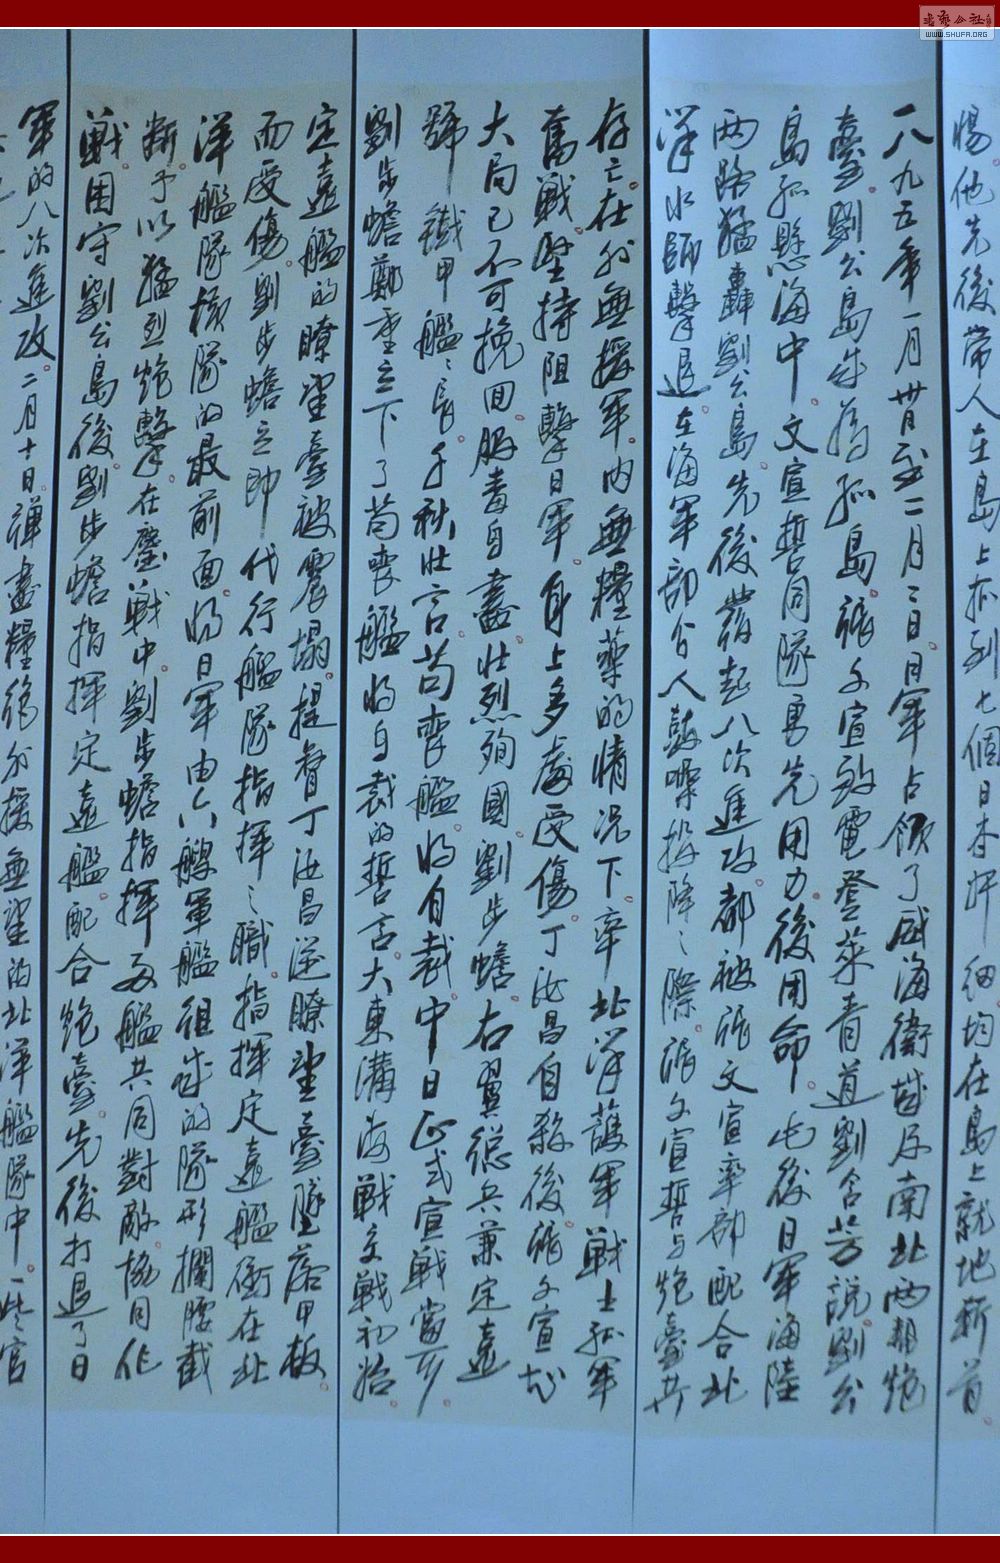 場他先後帶人在島上抓到七個日本奸細均在島上就地斬首
一八九五年一月卅日至二月二日日軍占領了威海衛城及南北兩幫炮
臺劉公島成為孤島張文宣致電登萊青道劉含芳說劉公
島孤懸海中文宣誓同隊勇先用力後用命此後日軍海陸
两路猛轟劉公島先後發起八次進攻都被張文宣率部配合北
洋水師擊退在海軍部分人鼓噪投降之際張文宣誓与炮臺共
存亡在外無援軍内無糧藥的情况下率北洋護軍戰士孤軍
奮戰堅持阻擊日軍身上多處受傷丁汝昌自殺後張文宣知
大局已不可挽回服毒自盡壯烈殉國劉步蟾右翼總兵兼定遠
號鐵甲艦艦長千秋壯言苟喪艦將自裁中日正式宣戰當
劉步蟾鄭重立下了苟喪艦將自裁的誓言大東溝海戰交戰初始
定遠艦的瞭望臺被震塌提督丁汝昌從瞭望臺墜落甲板
而受傷劉步蟾立即代行艦隊指揮之職指揮定遠艦衝在北
洋艦隊横隊的最前面將日軍由八艘軍艦組成的隊形攔腰截
斷予以猛烈炮擊在鏖戰中劉步蟾指揮両艦共同對敵協同作
戰困守劉公島後劉步蟾指揮定遠艦配合炮臺先後打退了日
軍的八次進攻二月十日彈盡糧絕外援無望的北洋艦隊中一些官
書藝公社
WWW.SHUFA.ORG